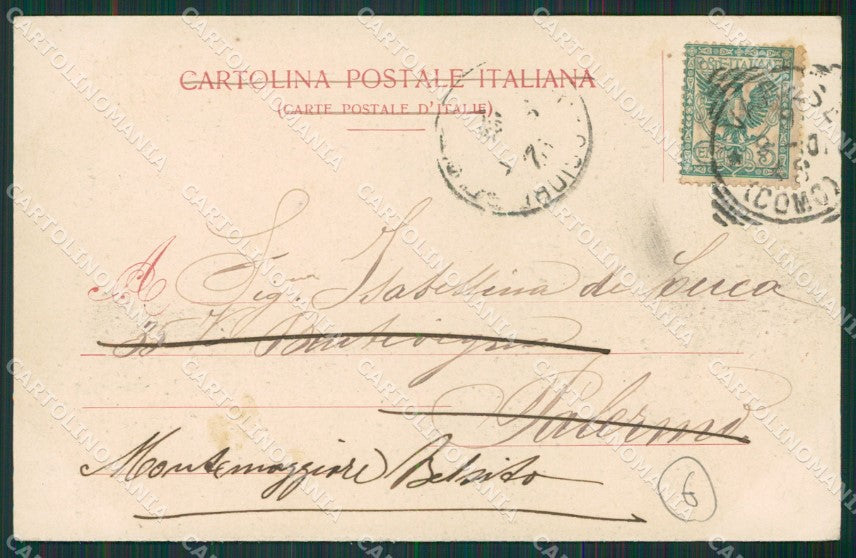 CARTOLINA POSTALE ITALIANA
(CARTE POSTALE D'ITALIE)
POSTE ITALIANE
(COMO)
A Sig.na Isabellina de Luca
35
Palermo
Montemaggiore Belsito
6
CARTOLINOMANIA